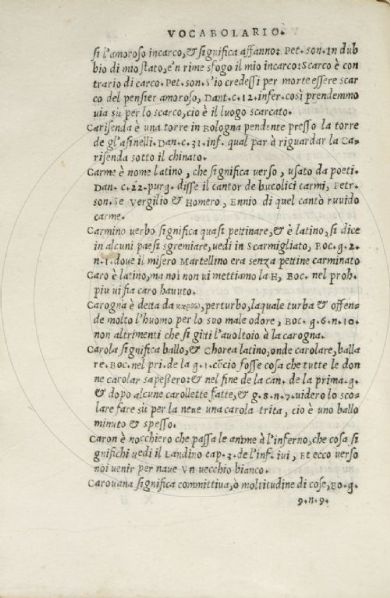 VOCABOLARIO.
si l'amoroso incarco, & significa affanno: Pet. son. In dub
bio di mio stato, e'n rime sfogo il mio incarco: Scarco è con
trario di carco. Pet. son. S'io credessi per morte essere scar
co del pensier amoroso, Dant. c. 12. infer. così prendemmo
uia sù per lo scarco, cio è il luogo scarcato.
Carisenda è una torre in Bologna pendente presso la torre
de gl'asinelli. Dan. c. 31. inf. qual par à riguardar la Ca
risenda sotto il chinato.
Carme è nome latino, che significa verso, usato da poeti.
Dan. c. 22. purg. disse il cantor de bucolici carmi, Petr.
son. Se Vergilio & Homero, Ennio di quel cantò ruuido
carme.
Carmino uerbo significa quasi pettinare, & è latino, si dice
in alcuni paesi sgremiare, uedi in Scarmigliato, Boc. g. 2.
n. 1. doue il misero Martellino era senza pettine carminato
Caro è latino, ma noi non ui mettiamo la H, Boc. nel proh.
piu ui sia caro hauuto.
Carogna è detta da perturbo, laquale turba & offen
de molto l'huomo per lo suo male odore, Boc. g. 6. n. 10.
non altrimenti che si gitti l'auoltoio à la carogna.
Carola significa ballo, & Chorea latino, onde carolare, balla
re. Boc. nel pri. de la g. 1. cōcio fosse cosa che tutte le don
ne carolar sapessero: & nel fine de la can. de la prima. g.
& dopo alcune carollette fatte, & g. 8. n. 7. uidero lo sco
lare fare sù per la neue una carola trita, cio è uno ballo
minuto & spesso.
Caron è nocchiero che passa le anime à l'inferno, che cosa si
significhi uedi il Landino cap. 3. de l'inf. iui, Et ecco uerso
noi uenir per naue Vn uecchio bianco.
Carouana significa committiua, ò moltitudine di cose, Bo. g.
9. n. 9.